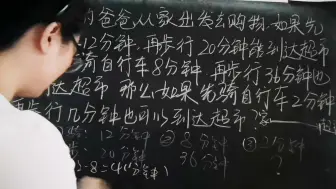 的爸爸从家出发去购物.如果先
12分钟.再步行20分钟能到达超市
骑自行车8分钟.再步行36分钟也
达超市 那么如果先骑自行车2分钟
步行几分钟也可以到达超市?
12分钟 ② 8分钟 ③ 2分钟
20分钟 36分钟 ?
-8=4(分钟)